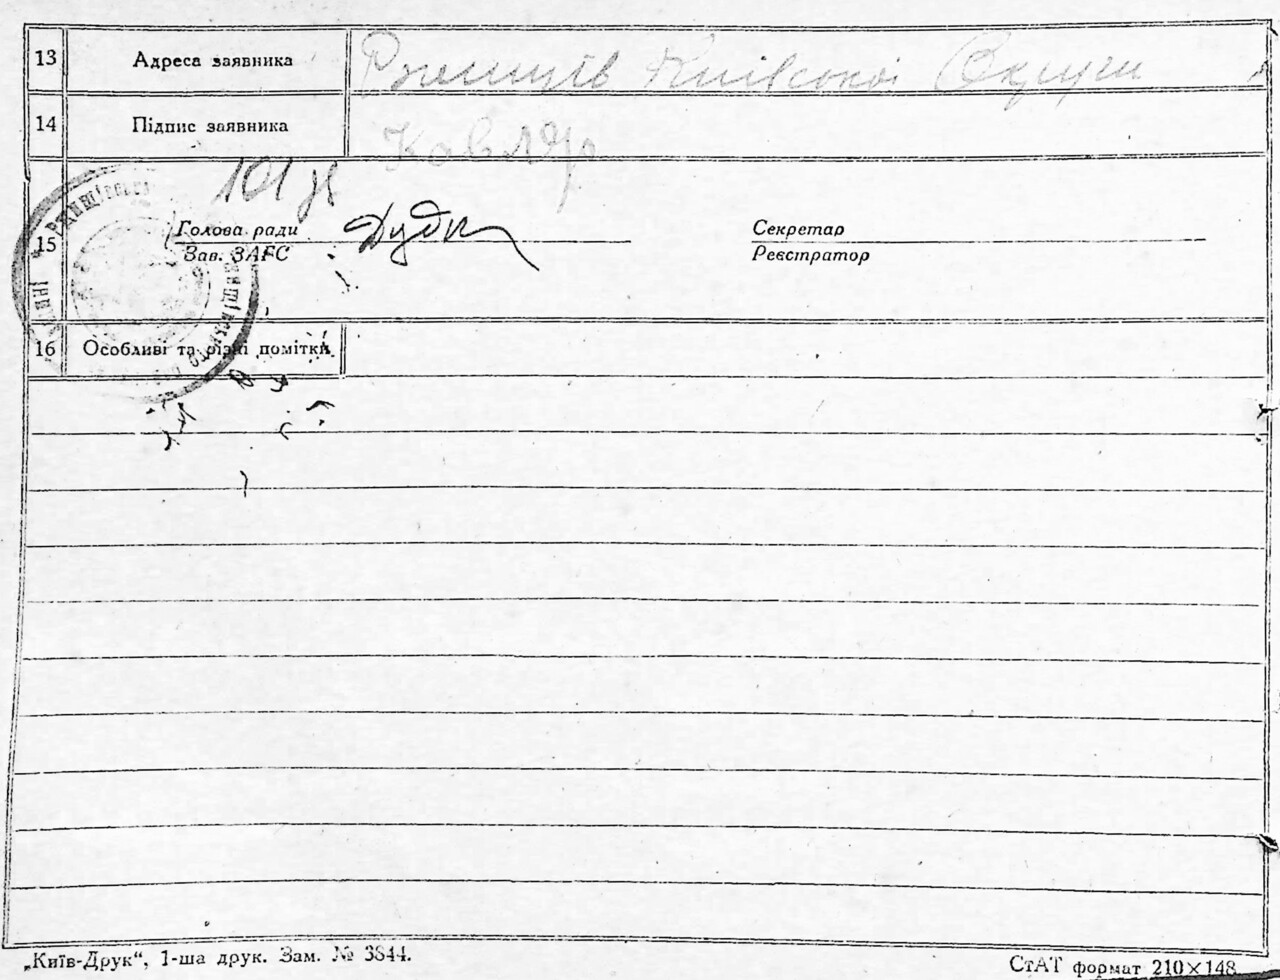 13 Адреса заявника Ржищів Київської Округи
14 Підпис заявника Кавляр
101
15 Голова ради Секретар
Зав. ЗАГС Реєстратор
16 Особливі та різні помітки
„Київ-Друк“, 1-ша друк. Зам. № 3844.
СтАТ формат 210×148